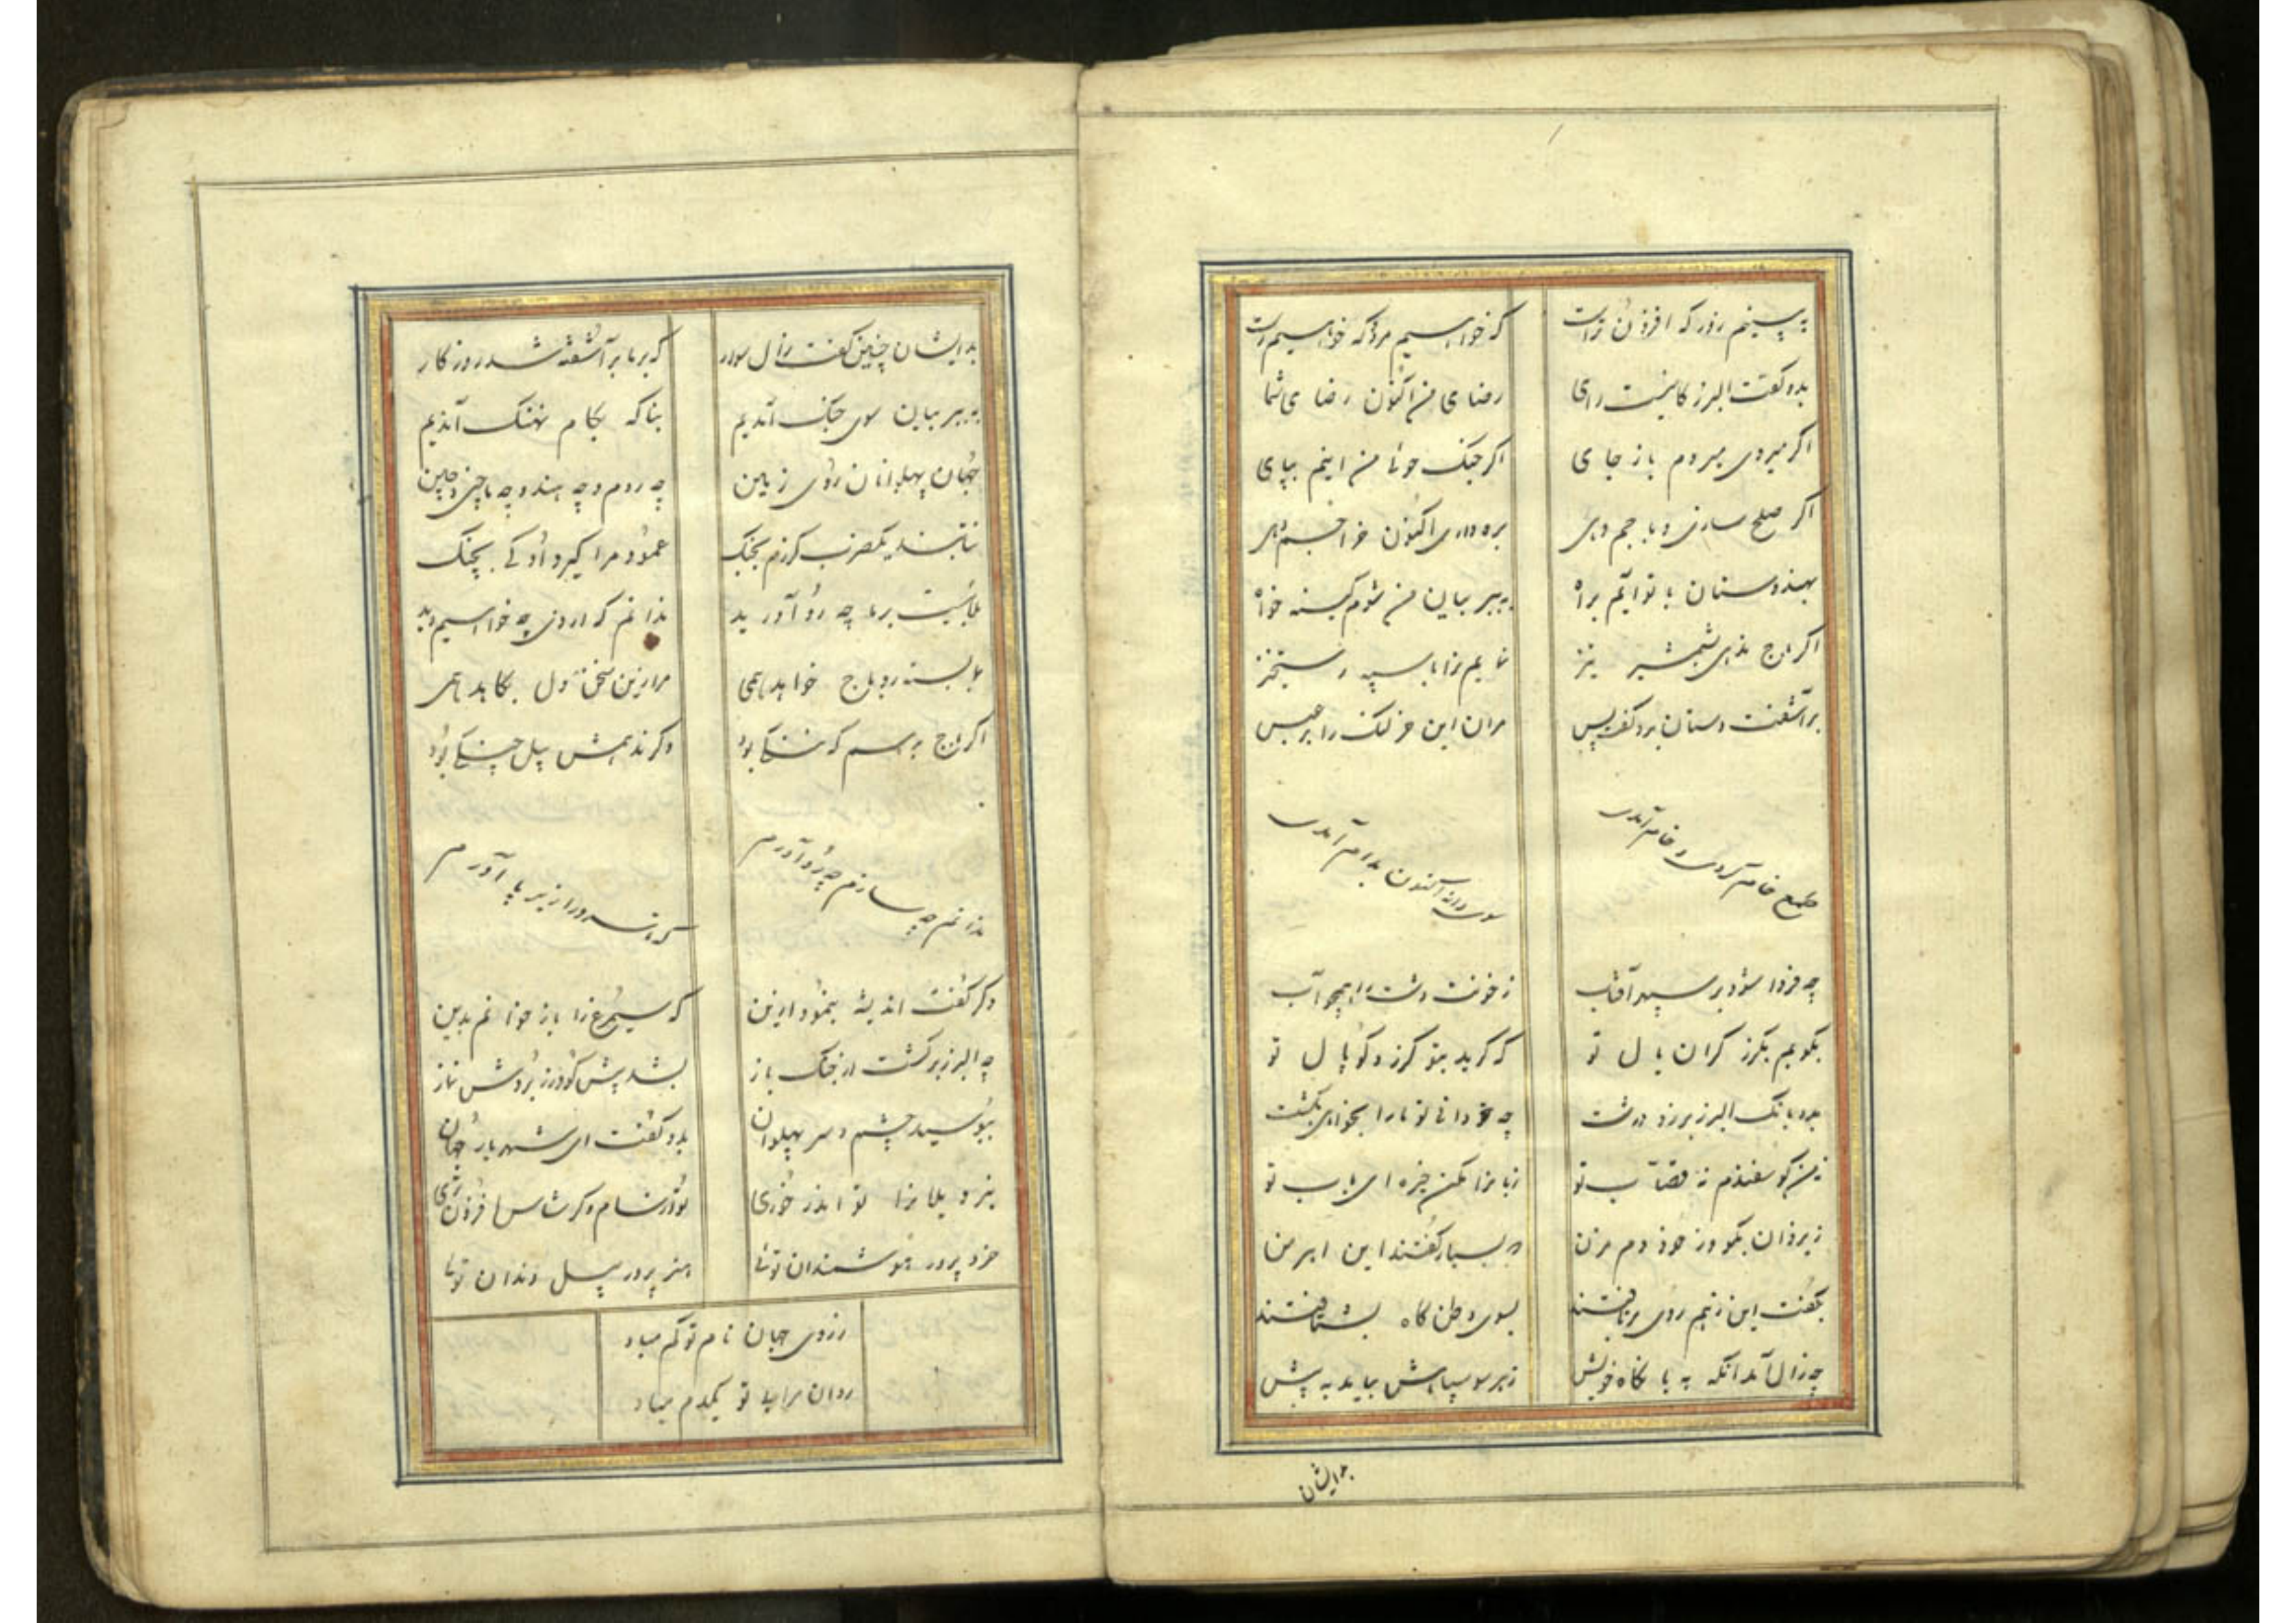 به بینیم زور که افزون تراست که خواهیم مرد و که خواهیم راست
بدو گفت البرز کاینست رای رضای من اکنون رضای شما
اگر میروی میروم باز جای اگر جنک جوئی من اینم بپای
اگر صلح سازی و باجم دهی بره داری اکنون
بهندوستان با تو آیم براه به ببر بیان من شوم کینه خواه
اگر باج ندهی بشمشیر تیز نمایم ترا با سپه رستخیز
برآشفت دستان بدو گفت بس مران این خر لنک را
طمع خام کردی و خام آمدی سوی دانه اکنون بدام آمدی
چه فردا شود بر سپهر آفتاب ز خونت دشت را همچو آب
بکوبم بکرز کران یال تو که کرید بتو کرز و کوپال تو
بدو بانک البرز برزد درشت چه خود دانی تو ما را بخواهی بکشت
نه من کوسفندم نه قصاب تو زبانرا مکن خیره ای باب تو
ز یزدان بکو وز خود دم مزن بسیار گفتند این اهرمن
بگفت این زهم روی برتافتند بسوی وطن گاه بشتافتند
چه زال آمد آنگه به بنگاه خویش ز هر سو سپاهش بیامد به پیش
بدایشان
بدایشان چنین گفت زال سوار که بر ما برآشفته شد روزکار
به ببر بیان سوی جنک آمدیم بناکه بکام نهنک آمدیم
جهان پهلوانان روی زمین چه روم و چه هند و چه ماچین و چین
نتابند یکضرب کرزم بجنک عمود مرا گیرد او کی بچنک
بلائیست بر ما چه رو آورید ندانم که از وی چه خواهیم دید
باج خواهد همی مرا زین سخن دل بکاهد همی
اگر باج بدهم که ننکی بود وکر ندهمش پیل جنکی بود
ندانم چه سازم چه رو آورم که ورا زیر پا آورم
دکر گفت اندیشه بنمود ازین که سیمرغ را باز خوانم بدین
چه البرز برگشت از جنک باز بشد پیش گودرز بردش نماز
ببوسید چشم و سر پهلوان بدو گفت ای شهریار جهان
بنزد یلانرا تو اندر خوری تو از سام و کرشاسب افزون تری
خرد پرور هوشمندان توئی هنر پرور پیل دندان توئی
ز روی جهان نام تو کم مباد
روان مرا بی تو یکدم مباد